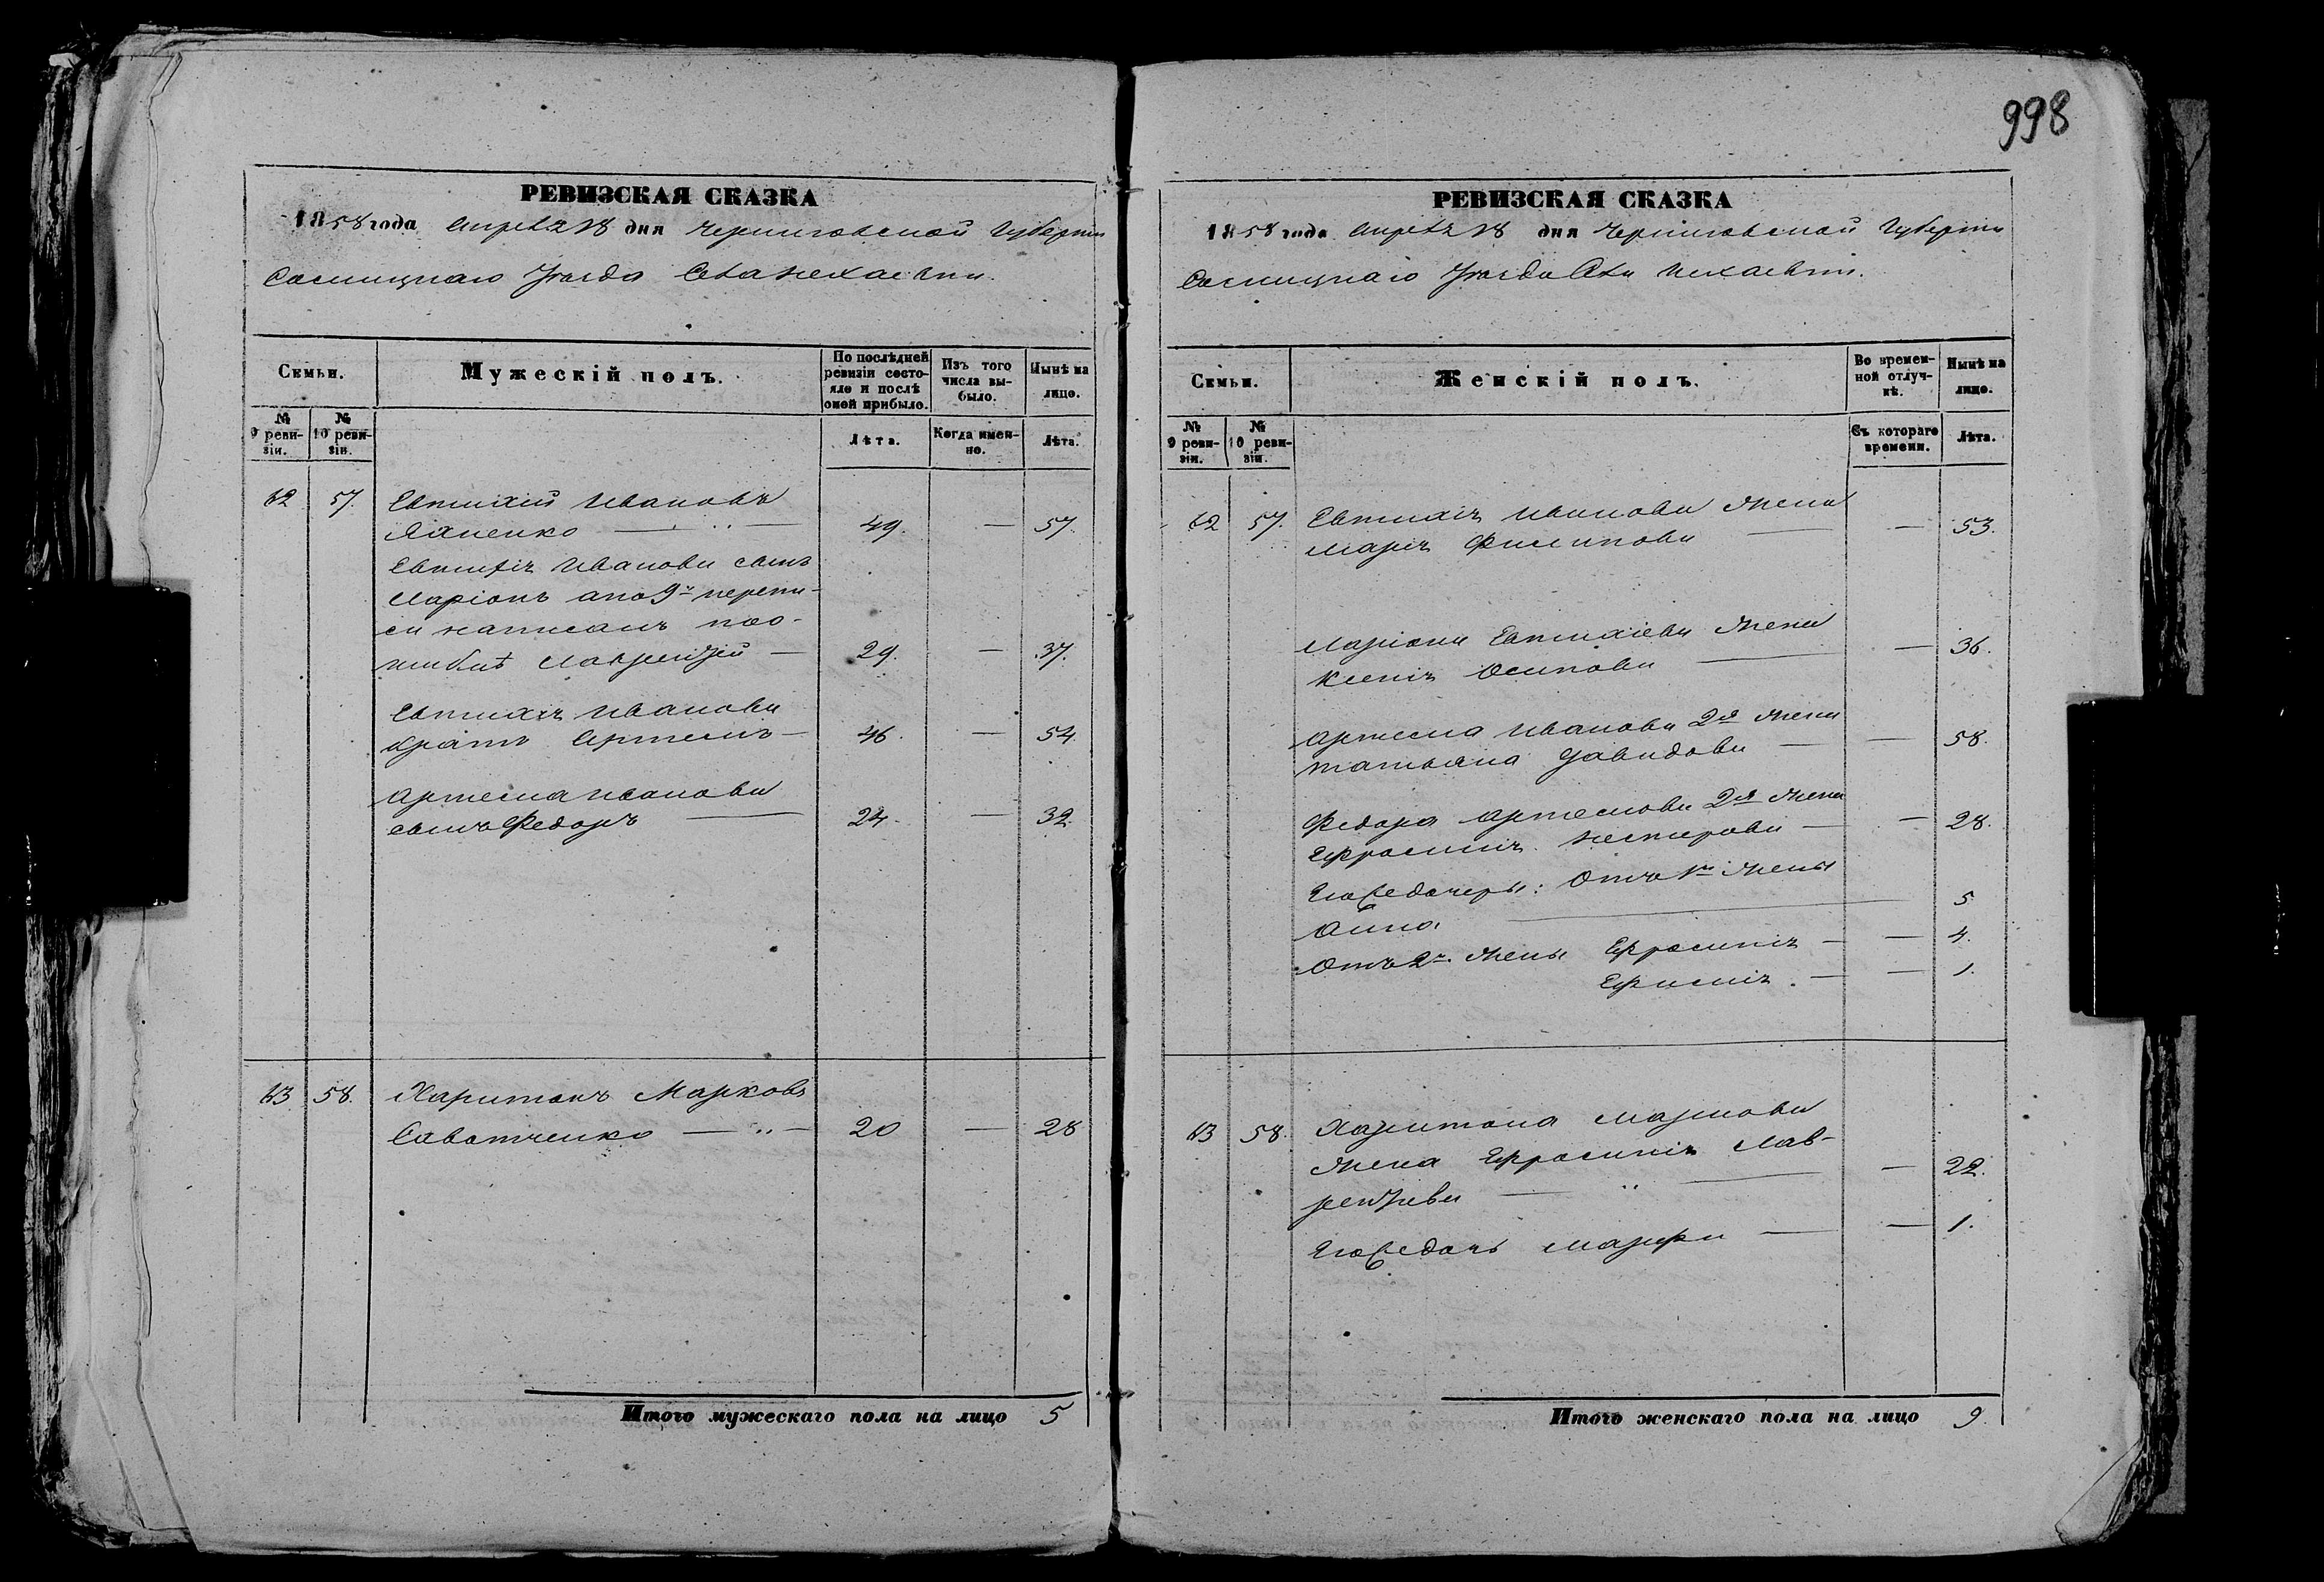 998
РЕВИЗСКАЯ СКАЗКА
1858 года Апреля 18 дня Черниговской Губернии
Сосницкаго Уезда Села Нехаевки.
Семьи.
Мужескій полъ.
По послѣдней ревизіи состояло и послѣ оной прибыло.
Изъ того числа выбыло.
Нынѣ на лицо.
№ 9 ревизіи.
№ 10 ревизіи.
Лѣта.
Когда именно.
Лѣта.
62 57. Евтихий Ивановъ
Яхненко — 49. — 57.
Евтихія Иванова сынъ
Ларіонъ а по 9й перепи-
си написанъ по о-
шибкѣ Лаврентій — 29. — 37.
Евтихія Иванова
братъ Артемъ — 46. — 54.
Артема Иванова
сынъ Федоръ — 24. — 32.
63. 58. Харитонъ Марковъ
Саватченко — 20 — 28
Итого мужескаго пола на лицо 5
РЕВИЗСКАЯ СКАЗКА
1858 года Апреля 18 дня Черниговской Губернии
Сосницкаго Уезда Села Нехаевки.
Семьи.
Женскій полъ.
Во временной отлучкѣ.
Нынѣ на лицо.
№ 9 ревизіи.
№ 10 ревизіи.
Съ котораго времени.
Лѣта.
62 57. Евтихія Иванова жена
Марія Филипова — — 53.
Ларіона Евтихіева жена
Ксенія Осипова — — 36.
Артема Иванова 2я жена
Татьяна Давидова — — 58.
Федора Артемова 2я жена
Ефросинія Нестерова — — 28.
Его же дочеры: Отъ 1й жены
Анна — 5
Отъ 2й жены Ефросинія — — 4.
Ефимія. — — 1.
63 58. Харитона Маркова
жена Ефросинія Лав-
рентіева — — 22.
Его же дочь Марфа — — 1.
Итого женскаго пола на лицо 9.